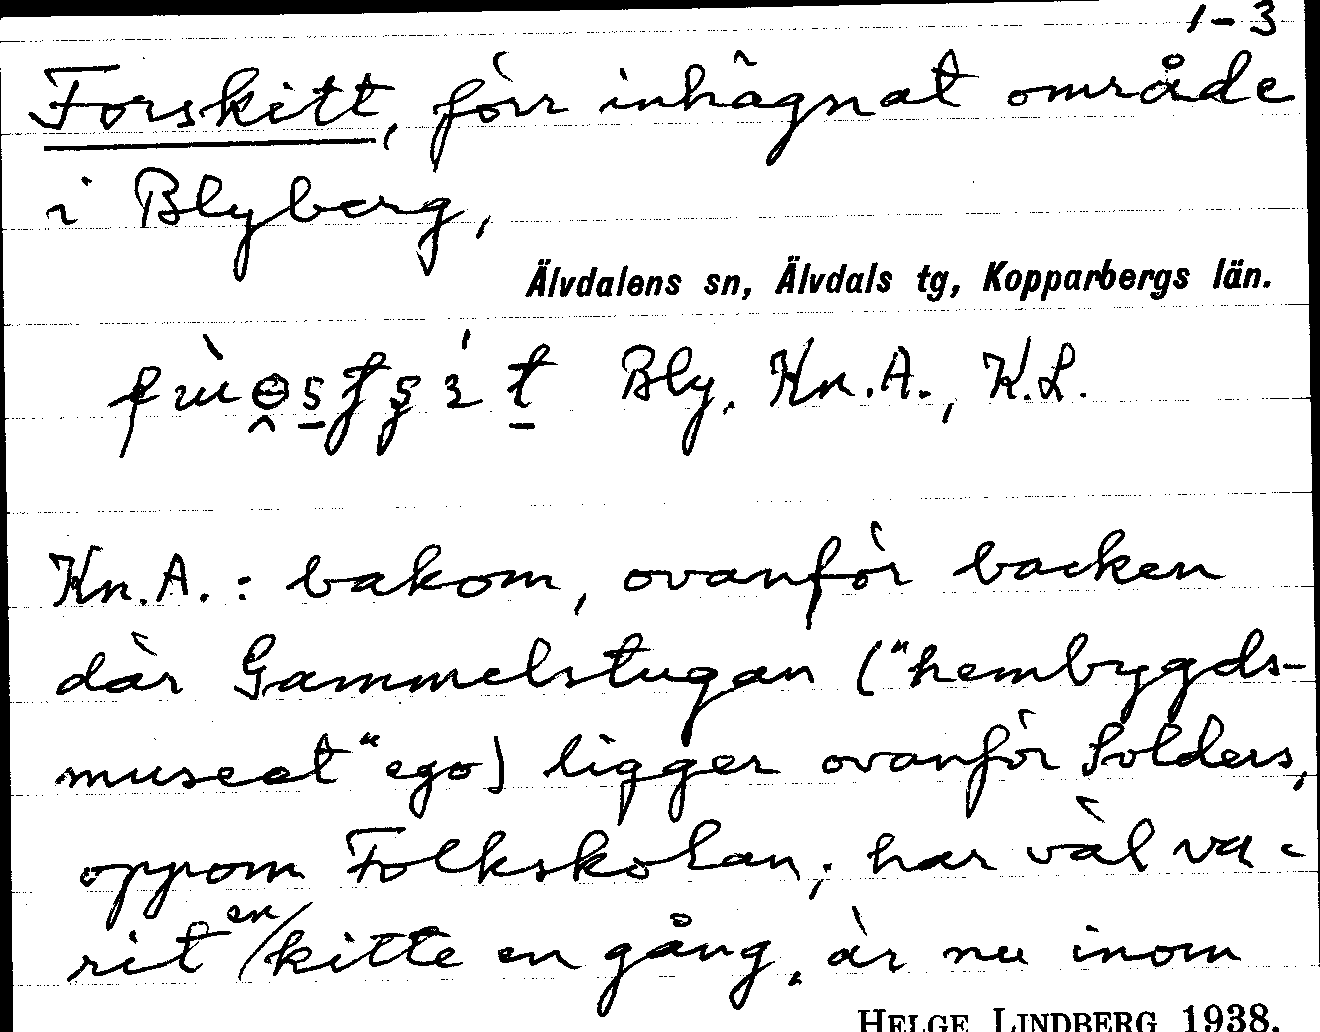 1-3
Forskitt, förr inhägnat område
i Blyberg,
Älvdalens sn, Älvdals tg, Kopparbergs län.
Bly. Kn.A., K.L.
Kn.A.: bakom, ovanför backen
där Gammelstugan ("hembygds-
museet" ego) ligger ovanför Solders,
oppom Folkskolan; har väl va-
rit en kitte en gång, är nu inom
HELGE LINDBERG 1938.